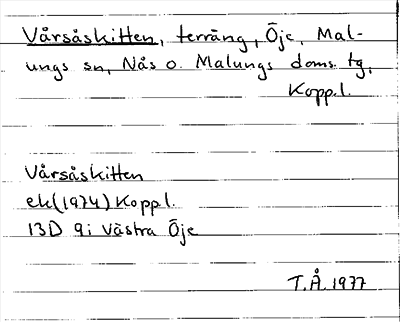 Vårsåskitten, terräng, Öje, Mal-
ungs sn, Nås o. Malungs doms. tg,
Kopp.l.
Vårsåskitten
ek(1974) Kopp.l.
13D 9i Västra Öje
T.Å. 1977